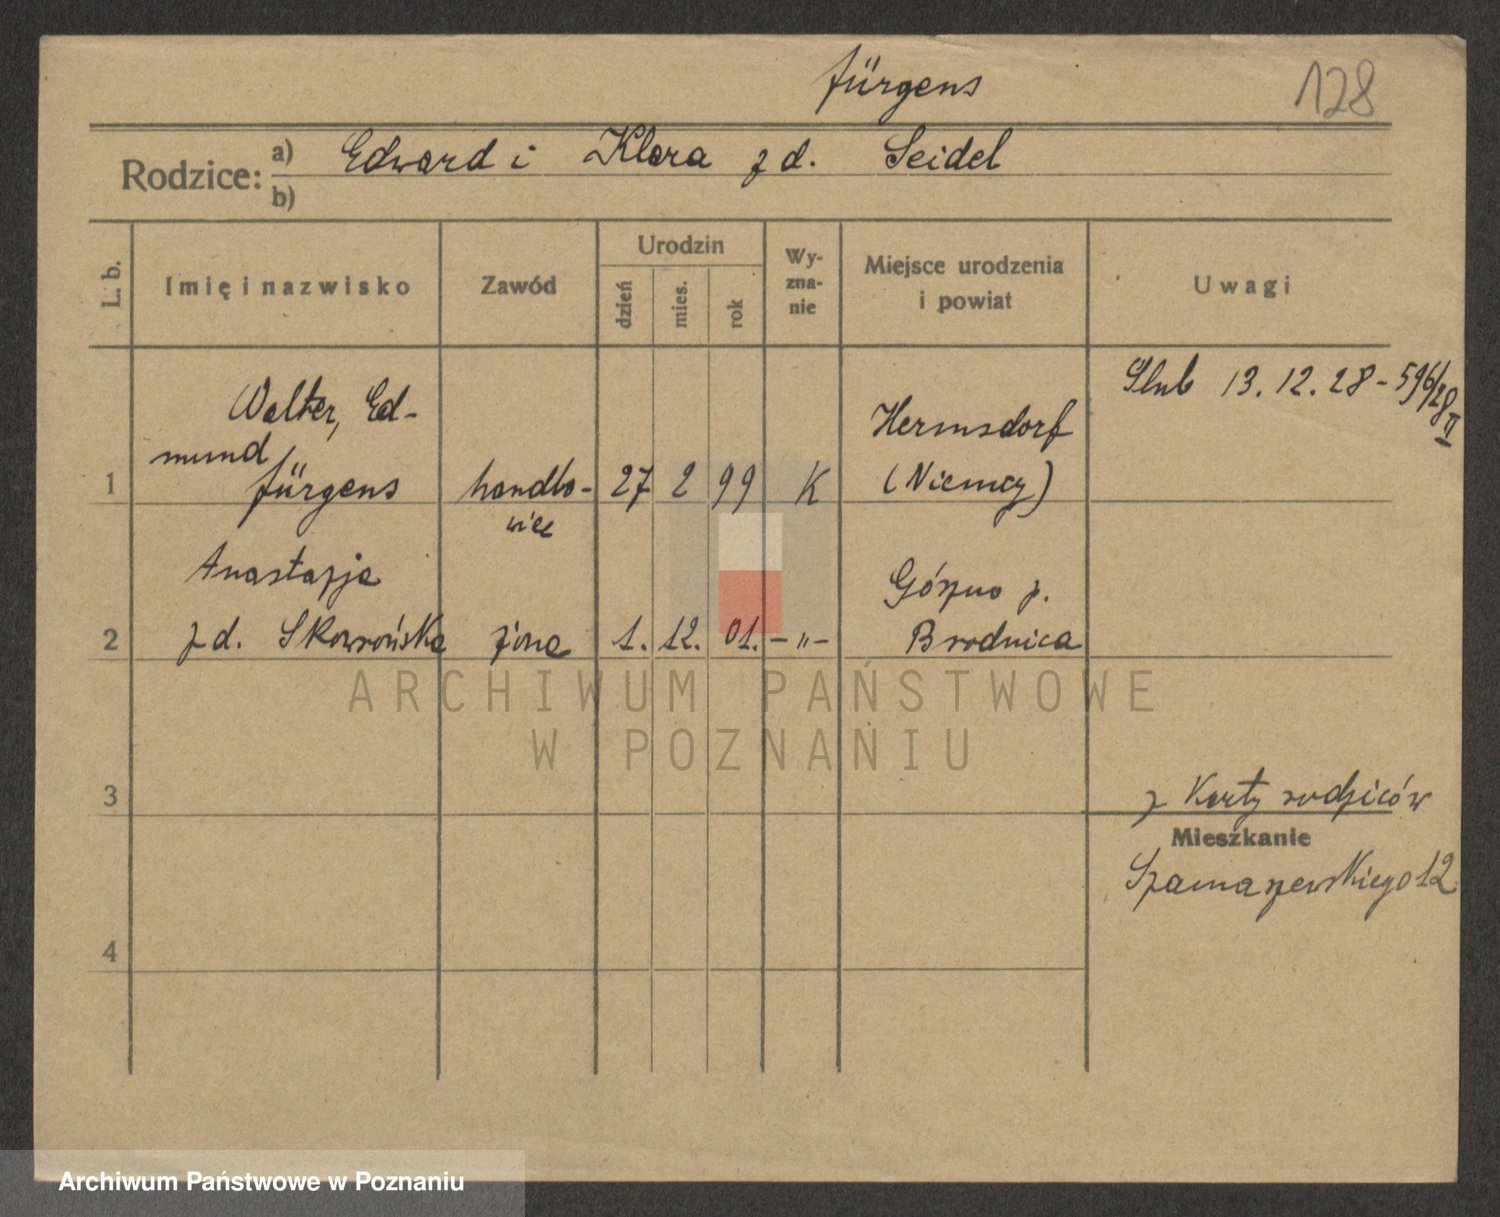 Jürgens
128
Rodzice: a) Edward i Klara z d. Seidel
b)
L. b.
Imię i nazwisko
Zawód
Urodzin
dzień
mies.
rok
Wy-
zna-
nie
Miejsce urodzenia
i powiat
Uwagi
Ślub 13. 12. 28 - 596/28 II
Walter, Ed-
mund
1 Jürgens handlo- 27 2 99 K
wiec
Hermsdorf
(Niemcy)
Anastazja
2 z d. Skowrońska żona 1. 12. 01. -"-
Górzno p.
Brodnica
3
z Karty rodziców
Mieszkanie
Szamarzewskiego 12
4
ARCHIWUM PAŃSTWOWE
W POZNANIU
Archiwum Państwowe w Poznaniu